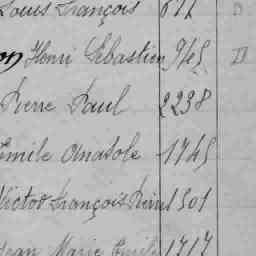 Louis François 611 II
on Henri Sébastien 945 II
Pierre Paul 2238
Emile Anatole 1745
Victor François Pierre 1501
Jean Marie Emile 1717